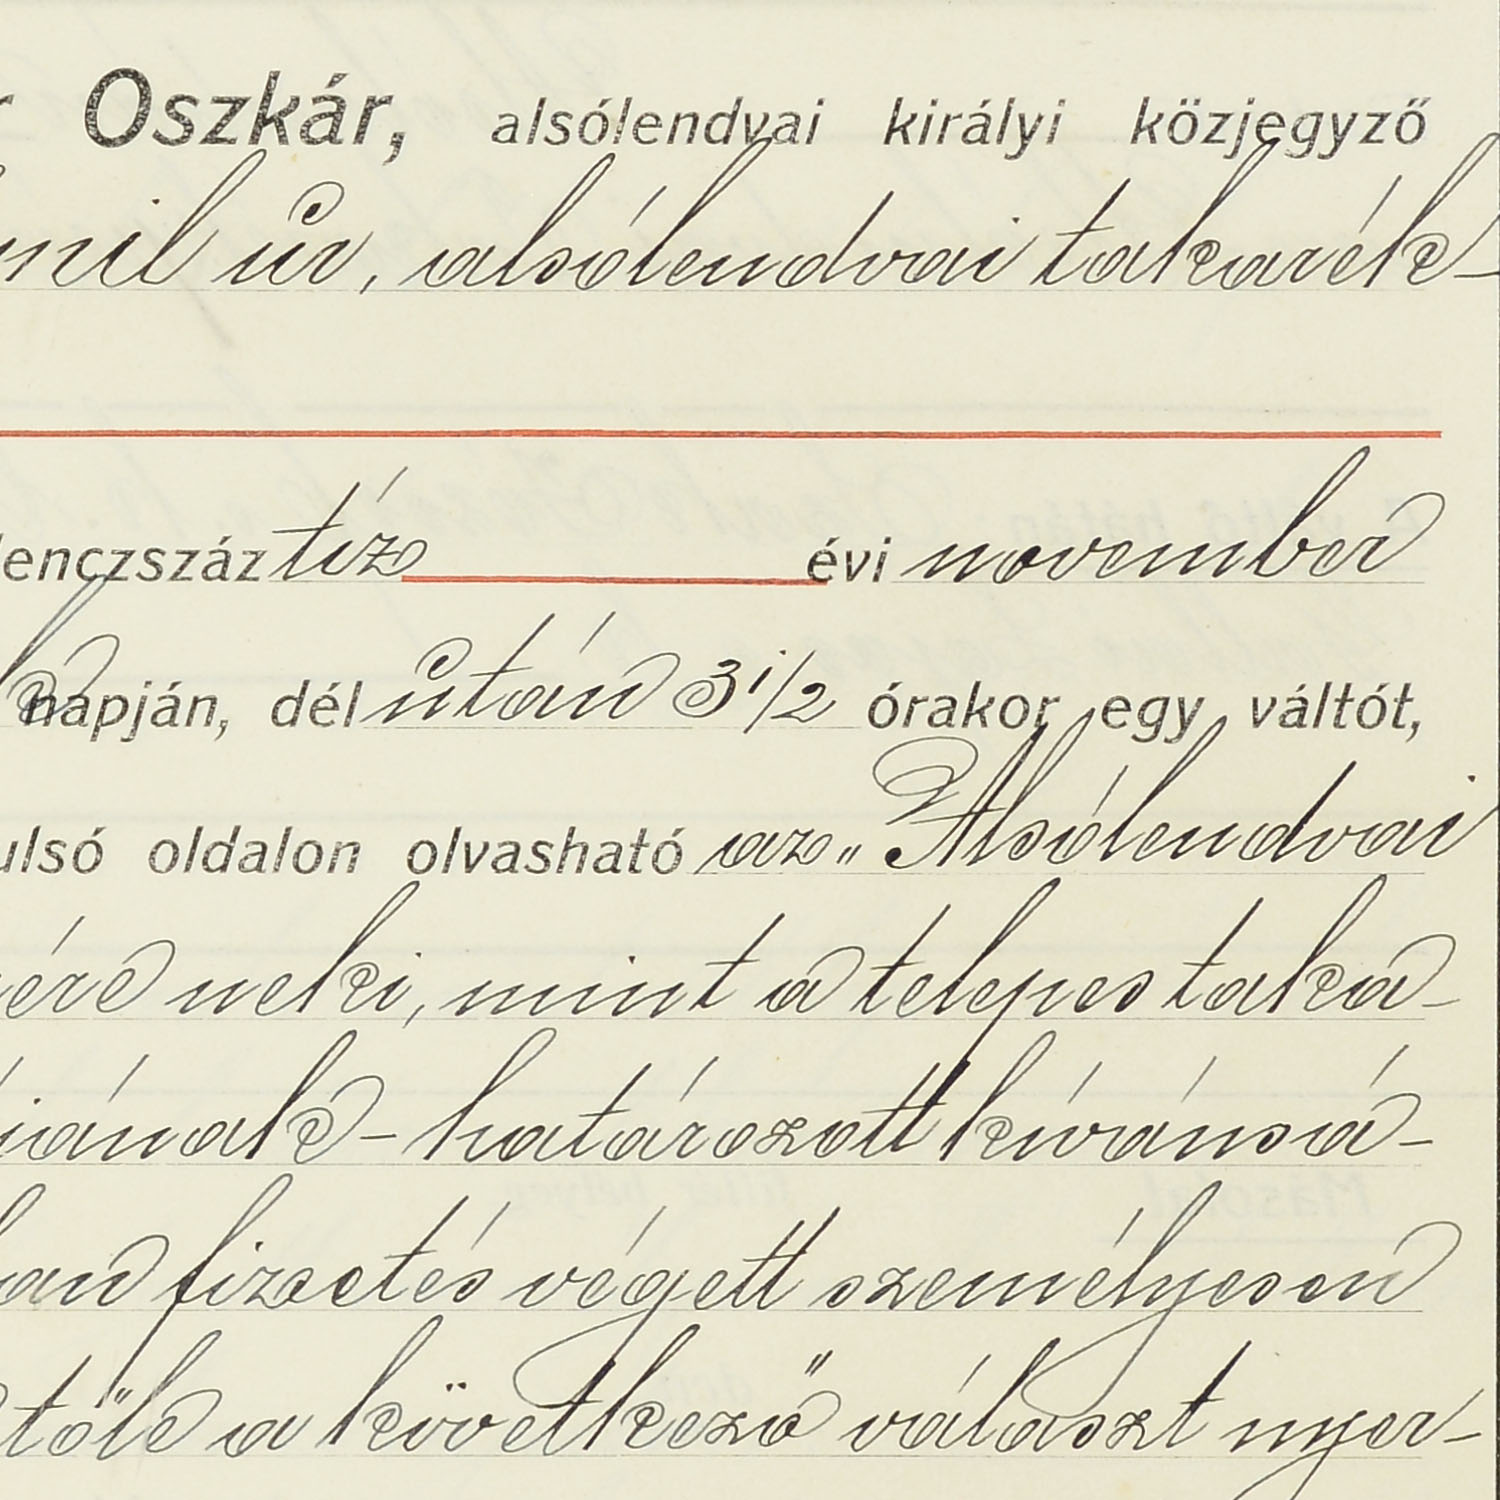 Oszkár, alsólendvai királyi közjegyző
mil úr, alsólendvai takarék-
lenczszáz tíz évi november
napján, dél után 3 1/2 órakor egy váltót,
ulsó oldalon olvasható az „Alsólendvai
neki, mint a telepes taka-
nak - határozott kívánsá-
fizetés végett személyesen
tőle a következő választ nyer-